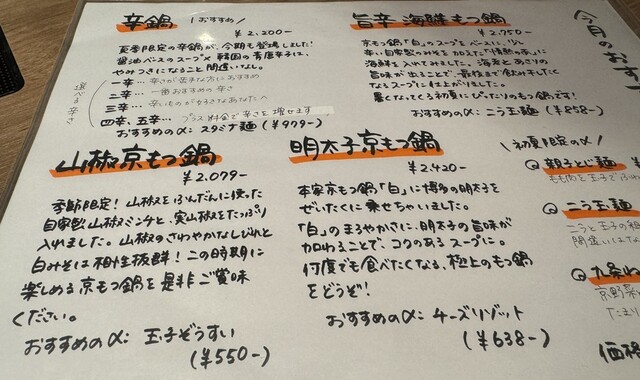 辛鍋 \おすすめ/
¥2,200-
夏季限定の辛鍋が、今期も登場しました!
醤油ベースのスープ×韓国の青唐辛子に、
やみつきになること間違いなし。
選べる辛さ
一辛…辛さが苦手な方におすすめ
二辛…一番おすすめの辛さ
三辛…辛いものが好きなあなたへ
四辛、五辛…プラス料金で辛さを増せます
おすすめのα:スタミナ麺(¥979-)
旨辛 海鮮もつ鍋
¥2,750-
京もつ鍋「白」のスープをベースに、
辛い自家製のみそを加えて
海鮮を入れてみました。海老とあさりの
旨味が出ることで、最後まで飲み干したく
なるスープに仕上がりました。
暑くなってくる初夏にぴったりのもつ鍋です!
おすすめのα:ニラ玉麺(¥858-)
今月のおす
山椒京もつ鍋
¥2,079-
季節限定!山椒をふんだんに使った
自家製山椒ミンチと、実山椒をたっぷり
入れました。山椒のさわやかなしびれと
白みそは相性抜群!この時期に
楽しめる京もつ鍋を是非ご賞味
ください。
おすすめのα:玉子ぞうすい
(¥550-)
明太子京もつ鍋
¥2,420-
本家京もつ鍋「白」に博多の明太子を
ぜいたくに乗せちゃいました。
「白」のまろやかさに、明太子の旨味が
加わることで、コクのあるスープに。
何度でも食べたくなる、極上のもつ鍋
をどうぞ!
おすすめのα:チーズリゾット
(¥638-)
\初夏限定の〆
親子とじ麺
もも肉を玉子で
ニラ玉麺
ニラと玉子の
間違いは
九条ね
京野菜
たまり
価格